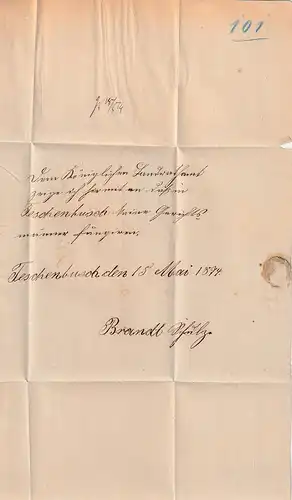 101
Dem Königlichen Landrathsamt
zeige ich hiermit an daß in
Teschenbusch keine Gerichts
männer fungiren.
Teschenbusch den 15 Mai 1874
Brandt Schulze